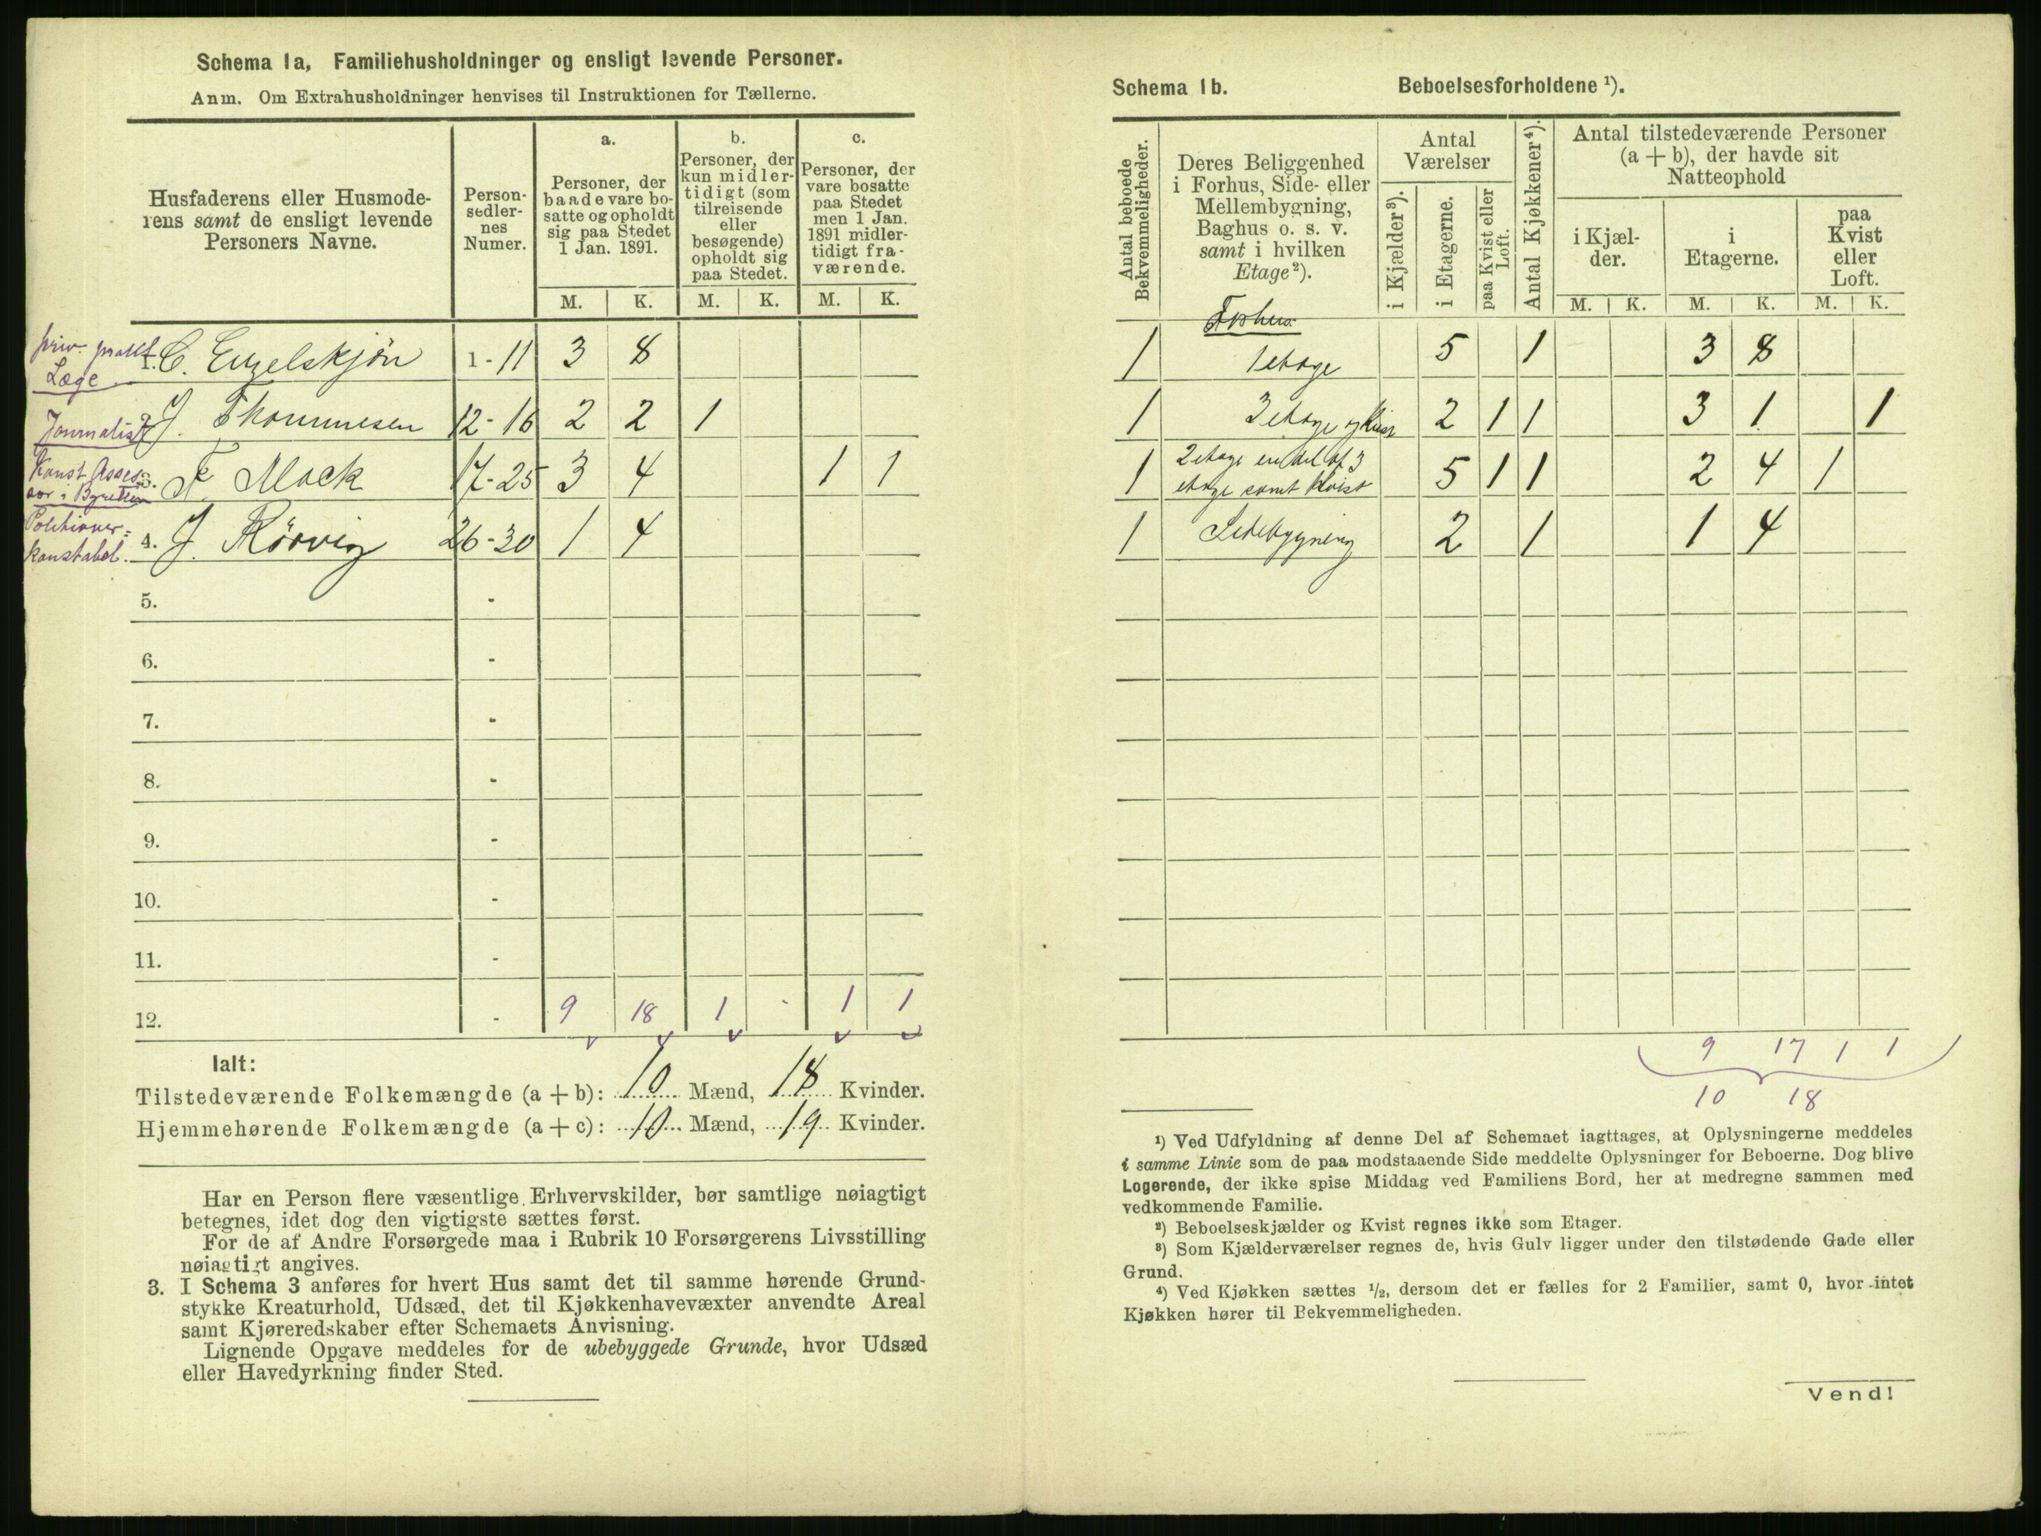 Schema 1a, Familiehusholdninger og ensligt levende Personer.
Anm. Om Extrahusholdninger henvises til Instruktionen for Tællerne.
Husfaderens eller Husmode-
rens samt de ensligt levende
Personers Navne.
Person-
sedler-
nes
Numer.
a.
Personer, der
baade vare bo-
satte og opholdt
sig paa Stedet
1 Jan. 1891.
b.
Personer, der
kun midler-
tidigt (som
tilreisende
eller
besøgende)
opholdt sig
paa Stedet.
c.
Personer, der
vare bosatte
paa Stedet
men 1 Jan.
1891 midler-
tidigt fra-
værende.
M. K. M. K. M. K.
priv. prakt.
Læge
1. C. Engelskjön 1 - 11 3 8
Journalist
2. J. Thommesen 12 - 16 2 2 1
Konst. Asses-
sor i Byretten
3. F. Mack 17 - 25 3 4 1 1
Politiover-
konstabel.
4. J. Rörvig 26 - 30 1 4
5. -
6. -
7. -
8. -
9. -
10. -
11. -
12. - 9 18 1 - 1 1
Ialt:
Tilstedeværende Folkemængde (a + b): 10 Mænd, 18 Kvinder.
Hjemmehørende Folkemængde (a + c): 10 Mænd, 19 Kvinder.
Har en Person flere væsentlige Erhvervskilder, bør samtlige nøiagtigt
betegnes, idet dog den vigtigste sættes først.
For de af Andre Forsørgede maa i Rubrik 10 Forsørgerens Livsstilling
nøiagtigt angives.
3. I Schema 3 anføres for hvert Hus samt det til samme hørende Grund-
stykke Kreaturhold, Udsæd, det til Kjøkkenhavevæxter anvendte Areal
samt Kjøreredskaber efter Schemaets Anvisning.
Lignende Opgave meddeles for de ubebyggede Grunde, hvor Udsæd
eller Havedyrkning finder Sted.
Schema 1b. Beboelsesforholdene ¹).
Antal beboede
Bekvemmeligheder.
Deres Beliggenhed
i Forhus, Side- eller
Mellembygning,
Baghus o. s. v.
samt i hvilken
Etage²).
Antal
Værelser
i Kjælder³).
i Etagerne.
paa Kvist eller
Loft.
Antal Kjøkkener⁴).
Antal tilstedeværende Personer
(a + b), der havde sit
Natteophold
i Kjæl-
der.
i
Etagerne.
paa
Kvist
eller
Loft.
M. K. M. K. M. K.
Forhus
1 1 etage 5 1 3 8
1 3 etage og Kvist 2 1 1 3 1 1
1 2 etage en del af 3
etage samt Kvist 5 1 1 2 4 1
1 Sidebygning 2 1 1 4
9 17 1 1
10 18
¹) Ved Udfyldning af denne Del af Schemaet iagttages, at Oplysningerne meddeles
i samme Linie som de paa modstaaende Side meddelte Oplysninger for Beboerne. Dog blive
Logerende, der ikke spise Middag ved Familiens Bord, her at medregne sammen med
vedkommende Familie.
²) Beboelseskjælder og Kvist regnes ikke som Etager.
³) Som Kjælderværelser regnes de, hvis Gulv ligger under den tilstødende Gade eller
Grund.
⁴) Ved Kjøkken sættes ½, dersom det er fælles for 2 Familier, samt 0, hvor intet
Kjøkken hører til Bekvemmeligheden.
Vend!